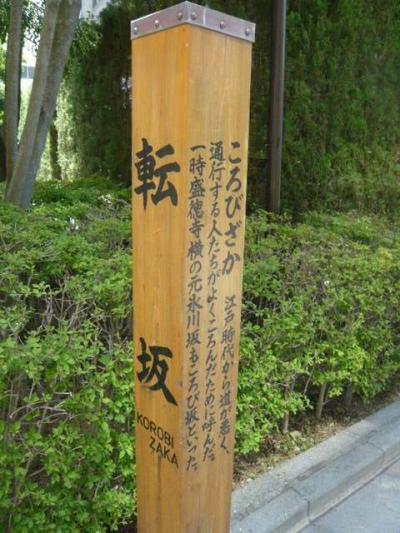 転坂
KOROBI
ZAKA
ころびざか
江戸時代から道が悪く、
通行する人たちがよくころんだために呼んだ。
一時盛徳寺横の元氷川坂もころび坂といった。